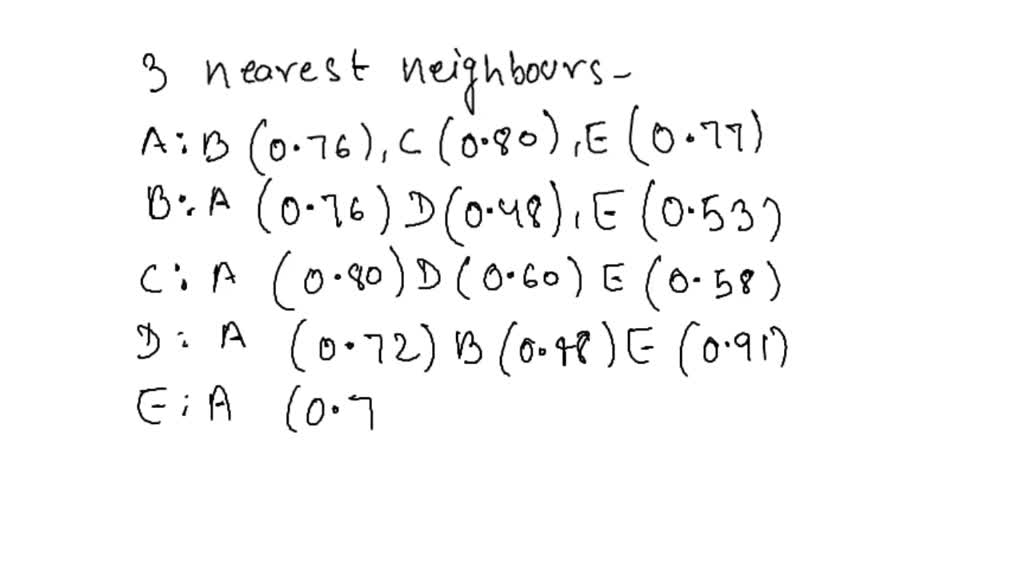 3 nearest neighbours-
A: B (0.76), C (0.80), E (0.77)
B: A (0.76) D (0.48), E (0.53)
C: A (0.80) D (0.60) E (0.58)
D: A (0.72) B (0.48) E (0.91)
E: A (0.7